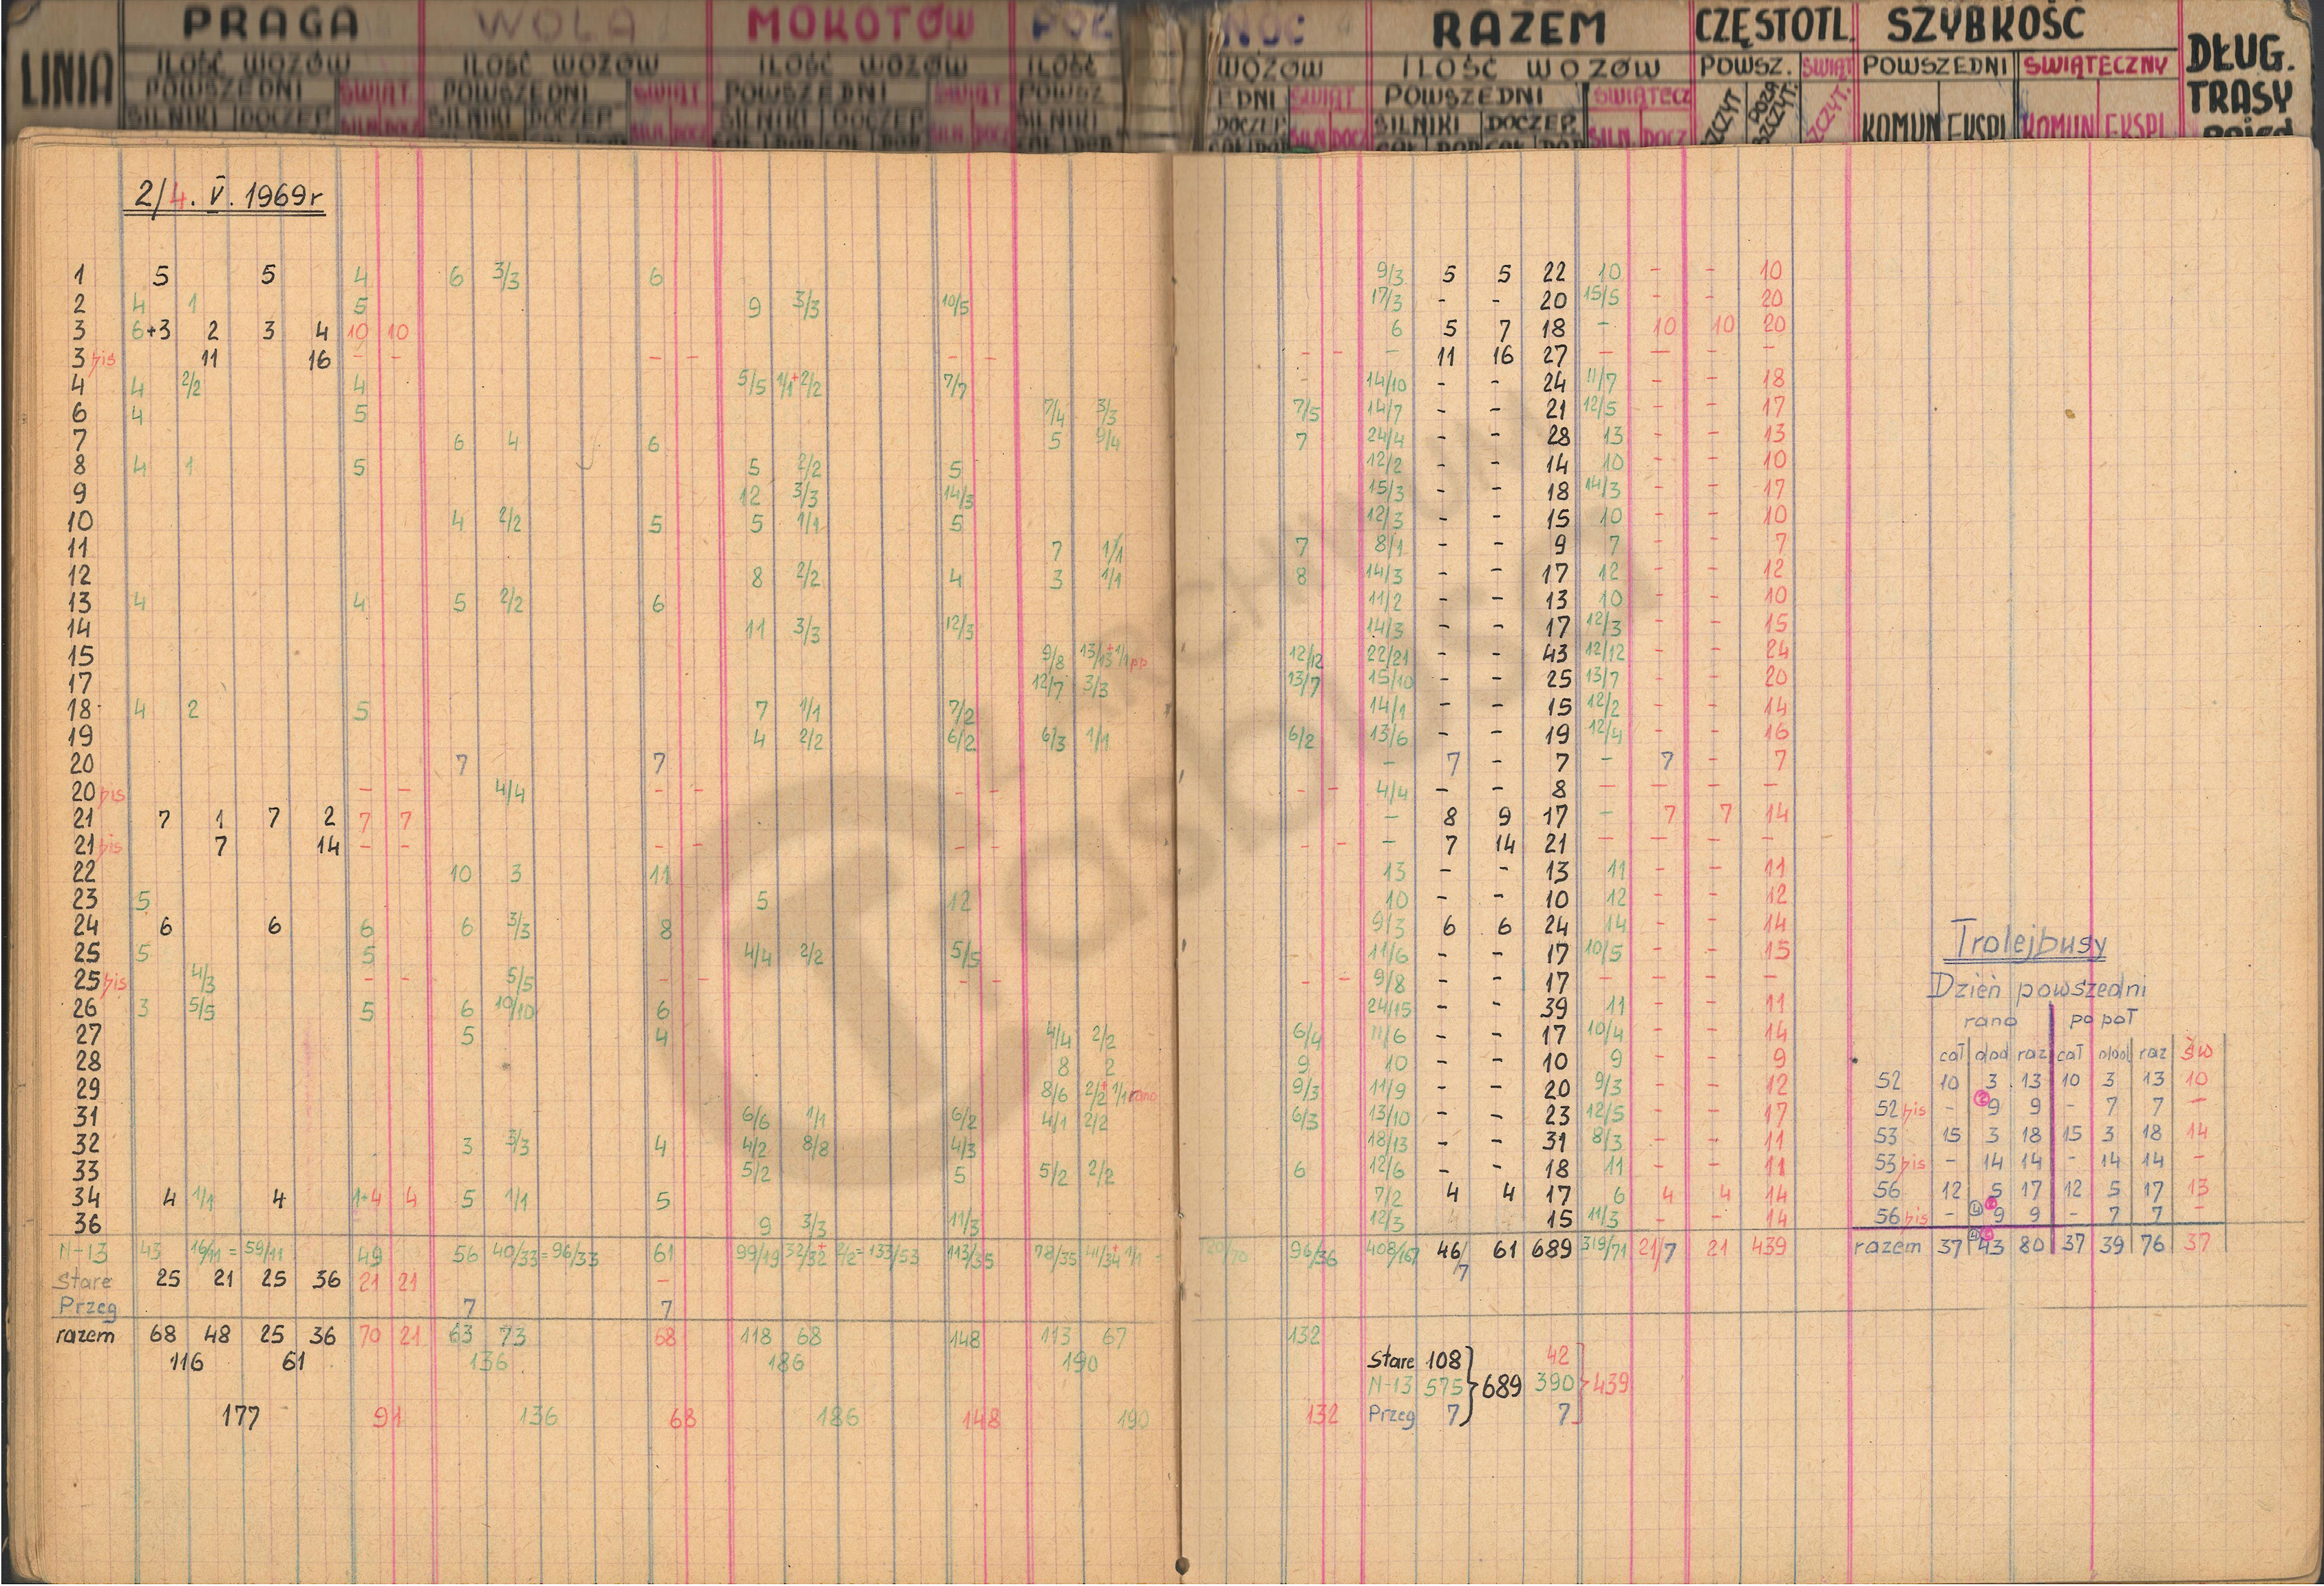 LINIA PRAGA WOLA MOKOTÓW PÓŁ NOC RAZEM CZĘSTOTL. SZYBKOŚĆ DŁUG. TRASY
ILOŚĆ WOZÓW ILOŚĆ WOZÓW ILOŚĆ WOZÓW ILOŚĆ WOZÓW ILOŚĆ WOZÓW POWSZ. ŚWIĄT POWSZEDNI ŚWIĄTECZNY
POWSZEDNI ŚWIĄT. POWSZEDNI ŚWIĄT POWSZEDNI ŚWIĄT POWSZ EDNI ŚWIĄT POWSZEDNI ŚWIĄTECZ SZCZYT POZA SZCZYT. SZCZYT.
SILNIKI DOCZEP. SILN. DOCZ SILNIKI DOCZEP SILN. DOCZ SILNIKI DOCZEP SILN DOCZ SILNIKI DOCZEP SILN DOCZ SILNIKI DOCZEP. SILN. DOCZ KOMUN EKSPL KOMUN EKSPL
2/4. V. 1969r
1 5 5 4 6 3/3 6 9/3 5 5 22 10 - - 10
2 4 1 5 9 3/3 10/5 17/3 - - 20 15/5 - - 20
3 6+3 2 3 4 10 10 6 5 7 18 - 10 10 20
3 bis 11 16 - - - - - - - - - 11 16 27 - - - -
4 4 2/2 4 5/5 1/1+2/2 7/7 - 14/10 - - 24 11/7 - - 18
6 4 5 7/4 3/3 7/5 14/7 - - 21 12/5 - - 17
7 6 4 6 5 9/4 7 24/4 - - 28 13 - - 13
8 4 1 5 5 2/2 5 12/2 - - 14 10 - - 10
9 12 3/3 14/3 15/3 - - 18 14/3 - - 17
10 4 2/2 5 5 1/1 5 12/3 - - 15 10 - - 10
11 7 1/1 7 8/1 - - 9 7 - - 7
12 8 2/2 4 3 1/1 8 14/3 - - 17 12 - - 12
13 4 4 5 2/2 6 11/2 - - 13 10 - - 10
14 11 3/3 12/3 14/3 - - 17 12/3 - - 15
15 9/8 13/13+1/1pp 12/12 22/21 - - 43 12/12 - - 24
17 12/7 3/3 13/7 15/10 - - 25 13/7 - - 20
18 4 2 5 7 1/1 7/2 14/1 - - 15 12/2 - - 14
19 4 2/2 6/2 6/3 1/1 6/2 13/6 - - 19 12/4 - - 16
20 7 7 - 7 - 7 - 7 - 7
20 bis - - 4/4 - - - - - - 4/4 - - 8 - - - -
21 7 1 7 2 7 7 - 8 9 17 - 7 7 14
21 bis 7 14 - - - - - - - - - 7 14 21 - - - -
22 10 3 11 13 - - 13 11 - - 11
23 5 5 12 10 - - 10 12 - - 12
24 6 6 6 6 3/3 8 9/3 6 6 24 14 - - 14
25 5 5 4/4 2/2 5/5 11/6 - - 17 10/5 - - 15
25 bis 4/3 - - 5/5 - - - - - - 9/8 - - 17 - - - -
26 3 5/5 5 6 10/10 6 24/15 - - 39 11 - - 11
27 5 4 4/4 2/2 6/4 11/6 - - 17 10/4 - - 14
28 8 2 9 10 - - 10 9 - - 9
29 8/6 2/2+1/1 rano 9/3 11/9 - - 20 9/3 - - 12
31 6/6 1/1 6/2 4/1 2/2 6/3 13/10 - - 23 12/5 - - 17
32 3 3/3 4 4/2 8/8 4/3 18/13 - - 31 8/3 - - 11
33 5/2 5 5/2 2/2 6 12/6 - - 18 11 - - 11
34 4 1/1 4 1+4 4 5 1/1 5 7/2 4 4 17 6 4 4 14
36 9 3/3 11/3 12/3 15 11/3 - - 14
N-13 43 16/11 = 59/11 49 56 40/33 = 96/33 61 99/19 32/32 + 2/2 = 133/53 113/35 78/35 41/34+1/1 = 96/36 408/167 46/7 61 689 319/71 21/7 21 439
Stare 25 21 25 36 21 21 -
Przeg 7 7
razem 68 48 25 36 70 21 63 73 68 118 68 148 113 67 132
116 61 136 186 190
177 91 136 68 186 148 190 132
Stare 108 42
N-13 575 } 689 390 } 439
Przeg 7 7
Trolejbusy
Dzień powszedni
rano po poł
cał dod raz cał dod raz św
52 10 3 13 10 3 13 10
52 bis - 9 9 - 7 7 -
53 15 3 18 15 3 18 14
53 bis - 14 14 - 14 14 -
56 12 5 17 12 5 17 13
56 bis - 9 9 - 7 7 -
razem 37 43 80 37 39 76 37